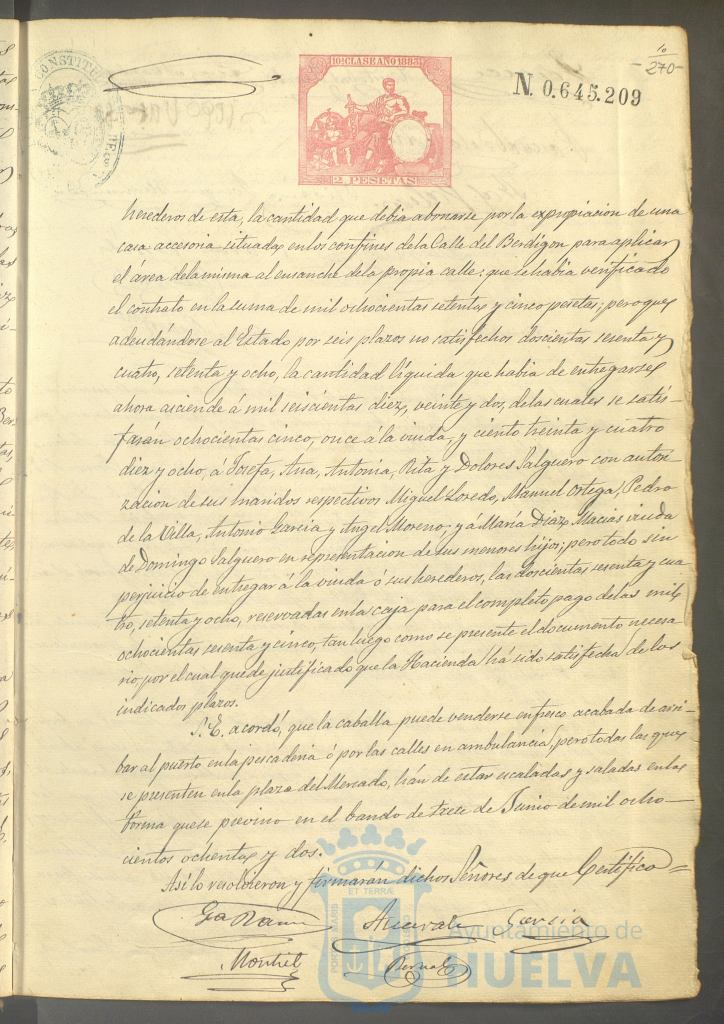 10
-270-
CONSTITU
10ª CLASE AÑO 1883
2 PESETAS
N. 0.645.209
herederos de esta, la cantidad que debia abonarse por la expropiacion de una
casa accesoria situada en los confines de la Calle del Berdigon para aplicar
el área de la misma al ensanche de la propia calle; que se habia verificado
el contrato en la suma de mil ochocientas setenta y cinco pesetas; pero que
adeudándose al Estado por seis plazos no satisfechos doscientas sesenta y
cuatro, setenta y ocho, la cantidad líquida que habia de entregarse
ahora asciende á mil seiscientas diez, veinte y dos, de las cuales se satis-
farán ochocientas cinco, once á la viuda, y ciento treinta y cuatro
diez y ocho, á Josefa, Ana, Antonia, Rita y Dolores Salguero con autori-
zacion de sus maridos respectivos Miguel Loredo, Manuel Ortega, Pedro
de la Villa, Antonio Garcia y Angel Moreno; y á María Diaz Macias viuda
de Domingo Salguero en representacion de sus menores hijos; pero todo sin
perjuicio de entregar á la viuda ó sus herederos, las doscientas sesenta y cua-
tro, setenta y ocho, reservadas en la caja para el completo pago de las mil
ochocientas sesenta y cinco, tan luego como se presente el documento necesa
rio por el cual quede justificado que la Hacienda há sido satisfecha de los
indicados plazos.
S. E. acordó, que la caballa puede venderse en fresco acabada de arri-
bar al puerto en la pescaderia ó por las calles en ambulancia, pero todas las que
se presenten en la plaza del Mercado, hán de estar escaladas y saladas en la
forma que se previno en el bando de trece de Junio de mil ocho-
cientos ochenta y dos.
Asi lo resolvieron y firmarán dichos Señores de que Certifico=
Garcia
Montiel
Bernal
Ayuntamiento de
HUELVA
ET TERRÆ